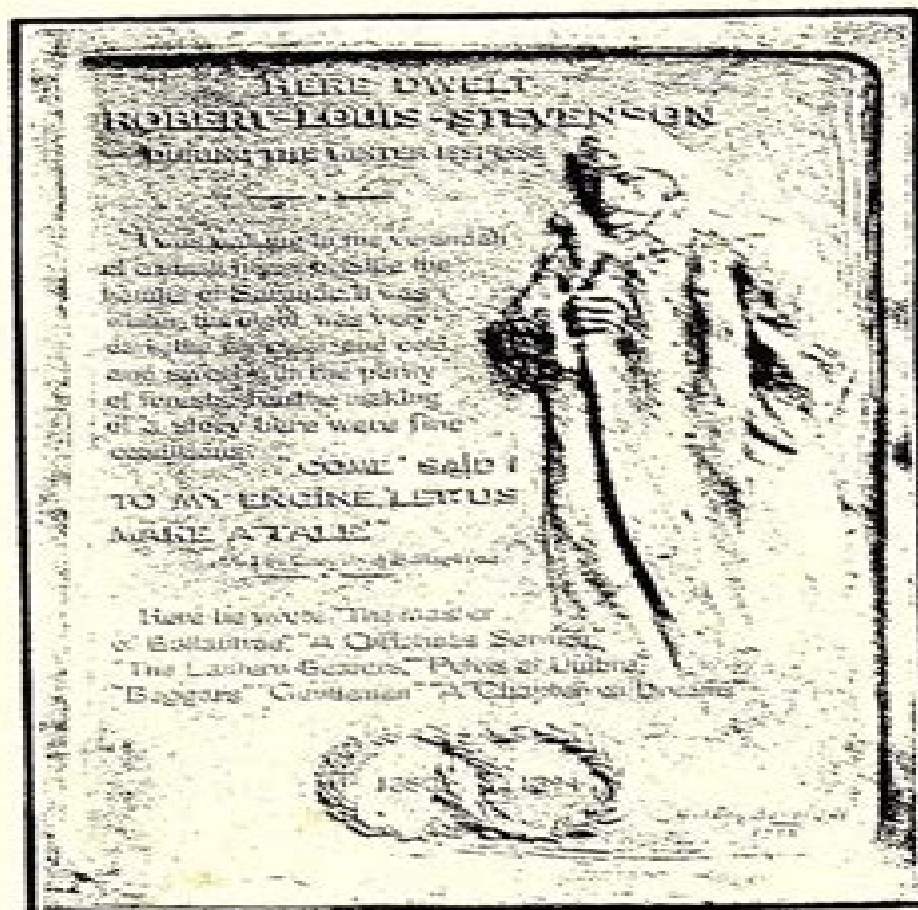 HERE DWELT
ROBERT-LOUIS-STEVENSON
DURING THE WINTER
I was walking in the verandah
of a small house outside the
hamlet of Saranac. It was
winter, the night was very
dark, the air clear and cold
and sweet with the purity
of forests. For the making
of a story here were fine
conditions.
"COME" SAID I
TO MY ENGINE, LET US
MAKE A TALE"
Here he wrote, "The Master
of Ballantrae" "A Christmas Sermon,"
"The Lantern-Bearers," "Pulvis et Umbra,"
"Beggars" "Gentlemen" "A Chapter on Dreams"